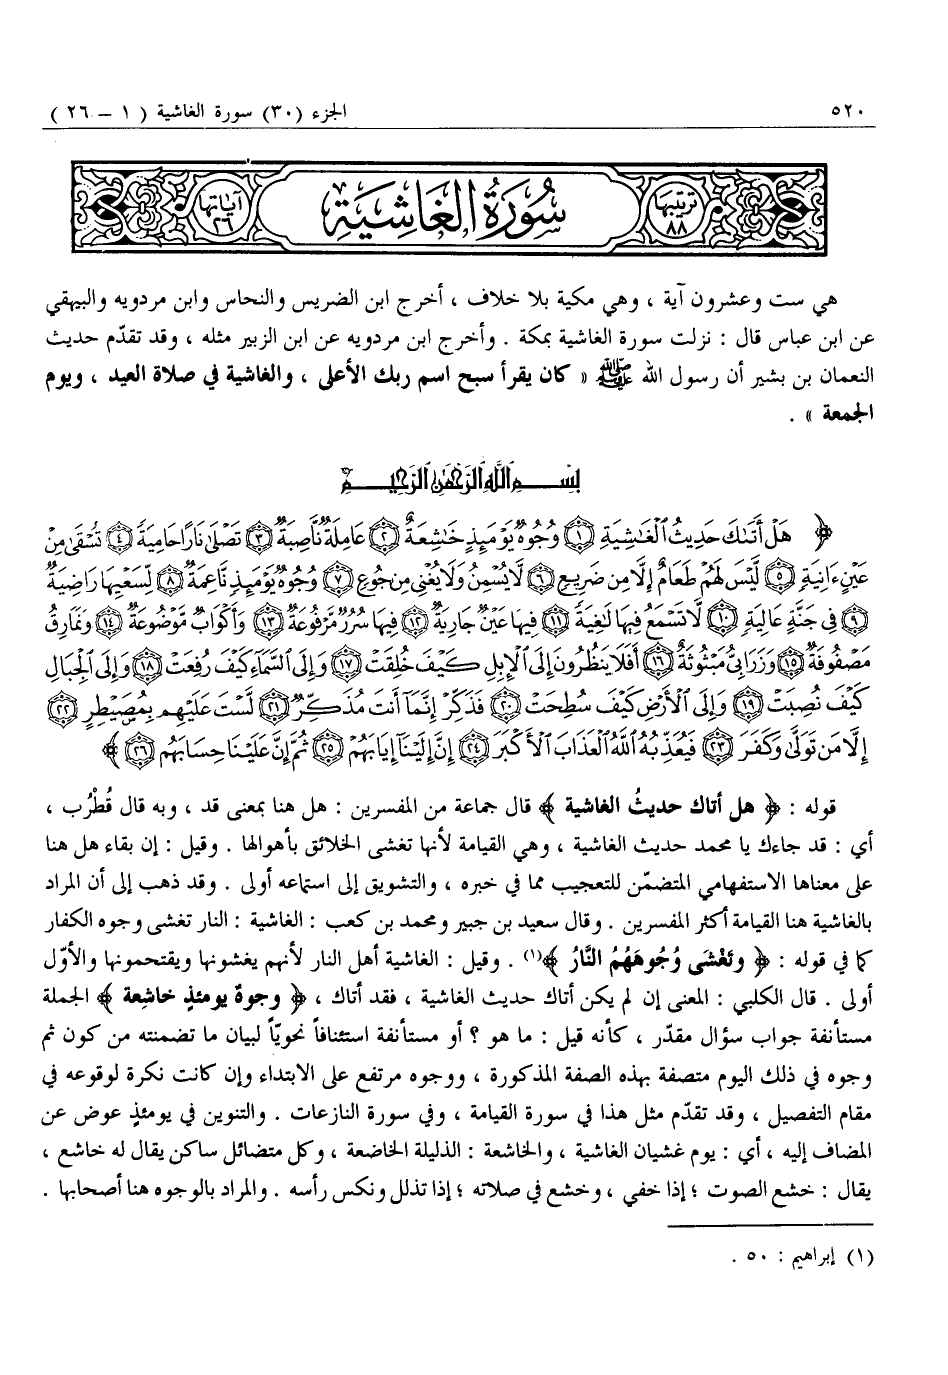 ٥٢٠ الجزء (٣٠) سورة الغاشية ( ١ – ٢٦ )
ترتيبها ٨٨ سُورَةُ الغَاشِيَةِ آياتها ٢٦
هي ست وعشرون آية ، وهي مكية بلا خلاف ، أخرج ابن الضريس والنحاس وابن مردويه والبيهقي
عن ابن عباس قال : نزلت سورة الغاشية بمكة . وأخرج ابن مردويه عن ابن الزبير مثله ، وقد تقدّم حديث
النعمان بن بشير أن رسول الله ﷺ « كان يقرأ سبح اسم ربك الأعلى ، والغاشية في صلاة العيد ، ويوم
الجمعة » .
بِسْمِ اللَّهِ الرَّحْمَٰنِ الرَّحِيمِ
﴿ هَلْ أَتَىٰكَ حَدِيثُ ٱلْغَٰشِيَةِ ۝١ وُجُوهٌ يَوْمَئِذٍ خَٰشِعَةٌ ۝٢ عَامِلَةٌ نَّاصِبَةٌ ۝٣ تَصْلَىٰ نَارًا حَامِيَةً ۝٤ تُسْقَىٰ مِنْ
عَيْنٍ ءَانِيَةٍ ۝٥ لَّيْسَ لَهُمْ طَعَامٌ إِلَّا مِن ضَرِيعٍ ۝٦ لَّا يُسْمِنُ وَلَا يُغْنِي مِن جُوعٍ ۝٧ وُجُوهٌ يَوْمَئِذٍ نَّاعِمَةٌ ۝٨ لِّسَعْيِهَا رَاضِيَةٌ
۝٩ فِي جَنَّةٍ عَالِيَةٍ ۝١٠ لَّا تَسْمَعُ فِيهَا لَٰغِيَةً ۝١١ فِيهَا عَيْنٌ جَارِيَةٌ ۝١٢ فِيهَا سُرُرٌ مَّرْفُوعَةٌ ۝١٣ وَأَكْوَابٌ مَّوْضُوعَةٌ ۝١٤ وَنَمَارِقُ
مَصْفُوفَةٌ ۝١٥ وَزَرَابِيُّ مَبْثُوثَةٌ ۝١٦ أَفَلَا يَنظُرُونَ إِلَى ٱلْإِبِلِ كَيْفَ خُلِقَتْ ۝١٧ وَإِلَى ٱلسَّمَآءِ كَيْفَ رُفِعَتْ ۝١٨ وَإِلَى ٱلْجِبَالِ
كَيْفَ نُصِبَتْ ۝١٩ وَإِلَى ٱلْأَرْضِ كَيْفَ سُطِحَتْ ۝٢٠ فَذَكِّرْ إِنَّمَآ أَنتَ مُذَكِّرٌ ۝٢١ لَّسْتَ عَلَيْهِم بِمُصَيْطِرٍ ۝٢٢
إِلَّا مَن تَوَلَّىٰ وَكَفَرَ ۝٢٣ فَيُعَذِّبُهُ ٱللَّهُ ٱلْعَذَابَ ٱلْأَكْبَرَ ۝٢٤ إِنَّ إِلَيْنَآ إِيَابَهُمْ ۝٢٥ ثُمَّ إِنَّ عَلَيْنَا حِسَابَهُم ۝٢٦ ﴾
قوله : ﴿ هل أتاك حديثُ الغاشية ﴾ قال جماعة من المفسرين : هل هنا بمعنى قد ، وبه قال قُطْرُب ،
أي : قد جاءك يا محمد حديث الغاشية ، وهي القيامة لأنها تغشى الخلائق بأهوالها . وقيل : إن بقاء هل هنا
على معناها الاستفهامي المتضمّن للتعجيب مما في خبره ، والتشويق إلى استماعه أولى . وقد ذهب إلى أن المراد
بالغاشية هنا القيامة أكثر المفسرين . وقال سعيد بن جبير ومحمد بن كعب : الغاشية : النار تغشى وجوه الكفار
كما في قوله : ﴿ وتَغْشَى وُجُوهَهُمُ النَّارُ ﴾(١) . وقيل : الغاشية أهل النار لأنهم يغشونها ويقتحمونها والأوّل
أولى . قال الكلبي : المعنى إن لم يكن أتاك حديث الغاشية ، فقد أتاك ، ﴿ وجوهٌ يومئذٍ خاشِعة ﴾ الجملة
مستأنفة جواب سؤال مقدّر ، كأنه قيل : ما هو ؟ أو مستأنفة استئنافاً نحويّاً لبيان ما تضمنته من كون ثم
وجوه في ذلك اليوم متصفة بهذه الصفة المذكورة ، ووجوه مرتفع على الابتداء وإن كانت نكرة لوقوعه في
مقام التفصيل ، وقد تقدّم مثل هذا في سورة القيامة ، وفي سورة النازعات . والتنوين في يومئذٍ عوض عن
المضاف إليه ، أي : يوم غشيان الغاشية ، والخاشعة : الذليلة الخاضعة ، وكل متضائل ساكن يقال له خاشع ،
يقال : خشع الصوت ؛ إذا خفي ، وخشع في صلاته ؛ إذا تذلل ونكس رأسه . والمراد بالوجوه هنا أصحابها .
(١) إبراهيم : ٥٠ .